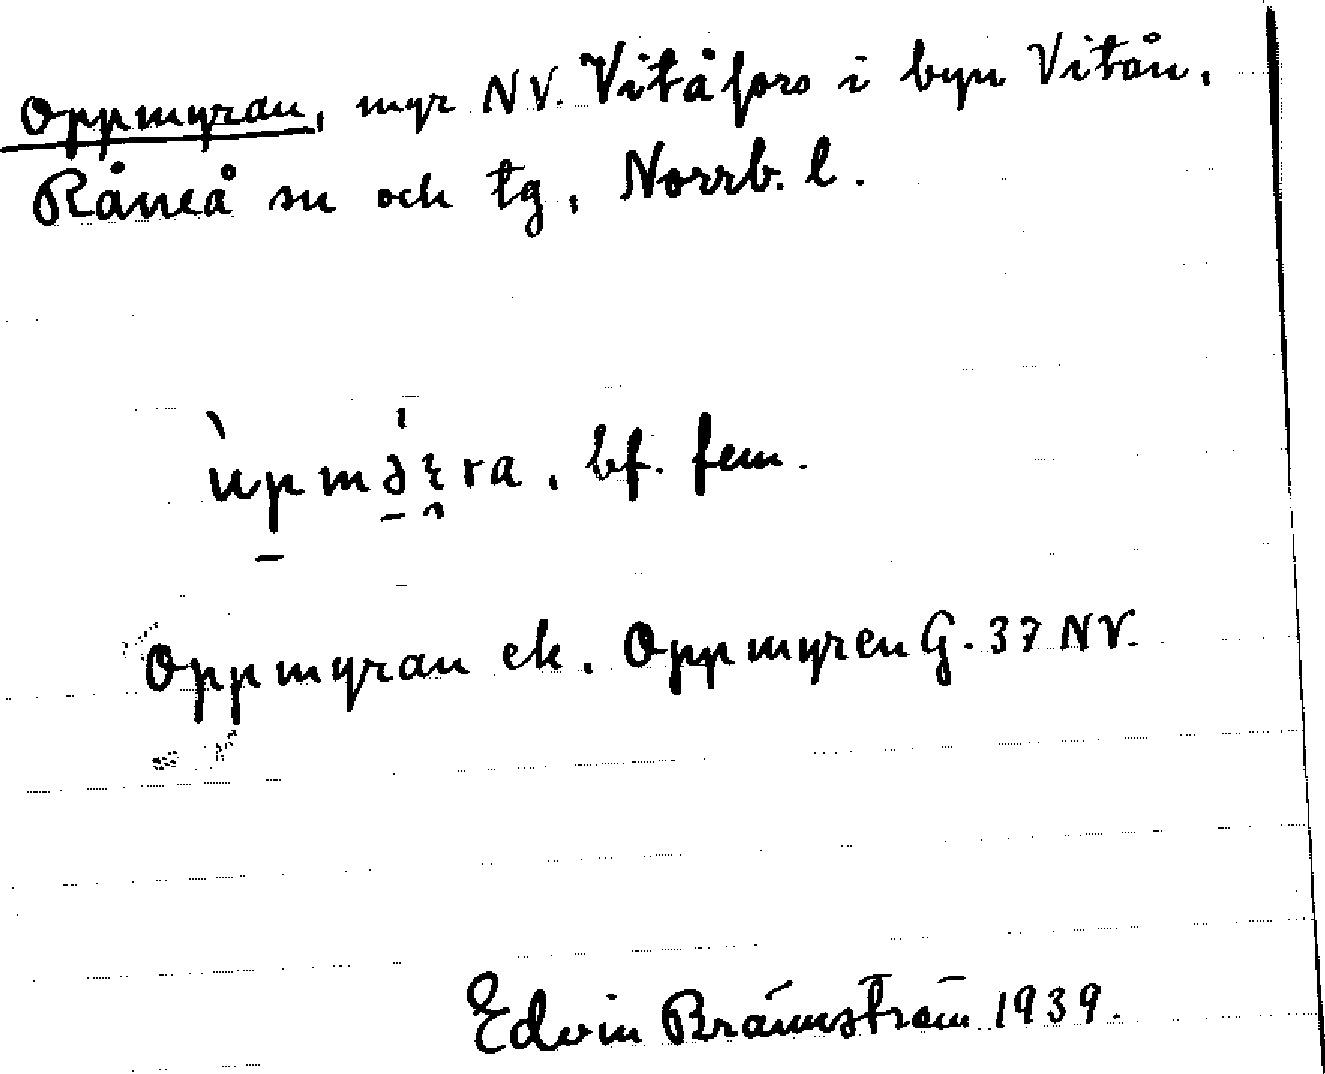 Oppmyran, myr NV. Vitåfors i byn Vitån,
Råneå sn och tg, Norrb. l.
bf. fem.
Oppmyran ek. Oppmyren G. 37 NV.
Edvin Brännström 1939.